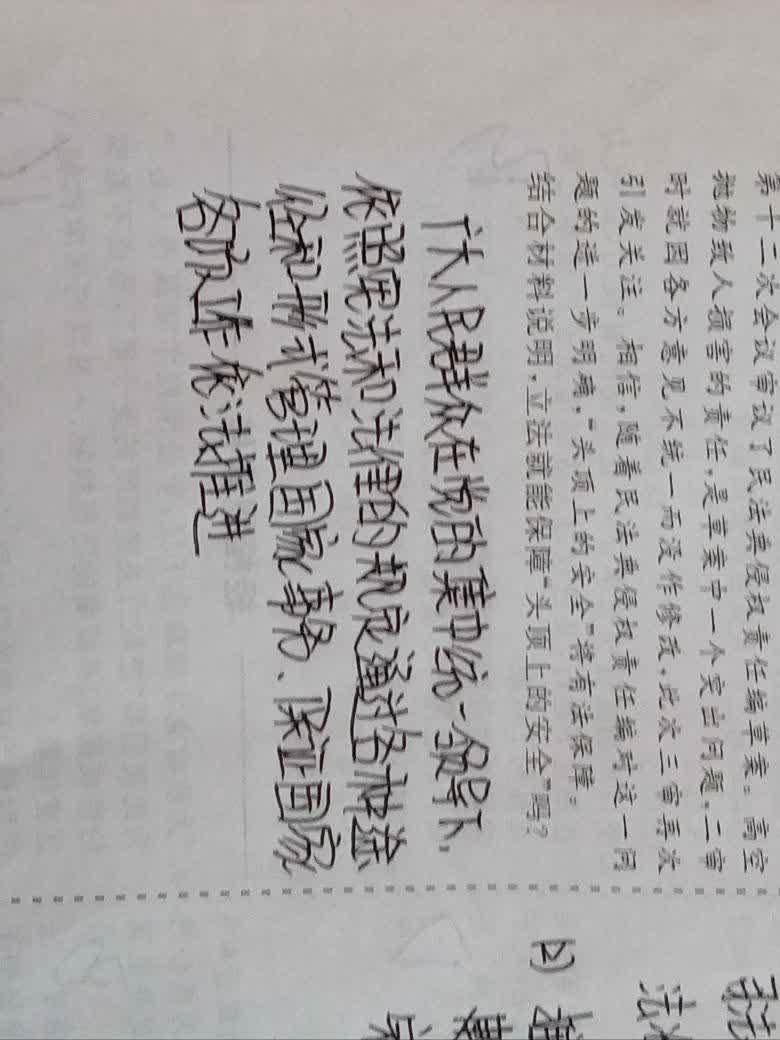 第十二次会议审议了民法典侵权责任编草案。高空
抛物致人损害的责任,是草案中一个突出问题,二审
时就因各方意见不统一而没作修改,此次三审再次
引发关注。相信,随着民法典侵权责任编对这一问
题的进一步明确,“头顶上的安全”将有法保障。
结合材料说明,立法就能保障“头顶上的安全”吗?
广大人民群众在党的集中统一领导下,
依照宪法和法律的规定通过各种途
径和形式管理国家事务、保证国家
各项工作依法推进
法
2)